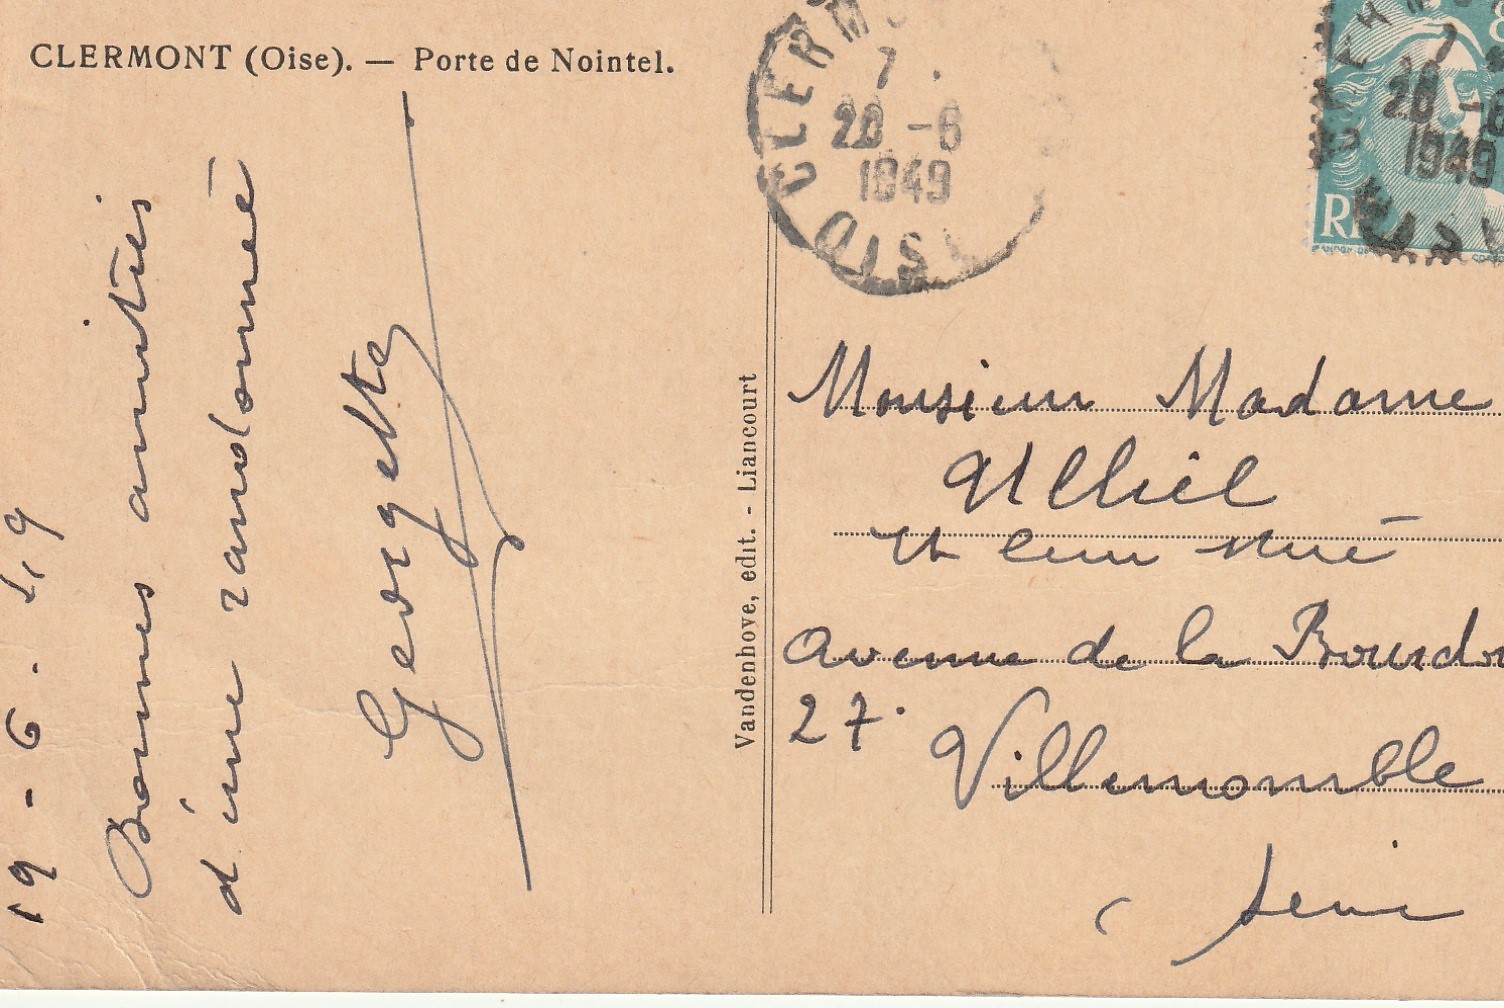 CLERMONT (Oise). — Porte de Nointel.
19 - 6 - 49
Bonnes amitiés
d'une randonneé
Georgette
Vandenhove, edit. - Liancourt
CLERMO
7
20 -6
1949
OISE
7
20 -6
1949
OISE
RF
Monsieur Madame
et leur
Avenue de la Bourdon
27.
Villemomble
Seine